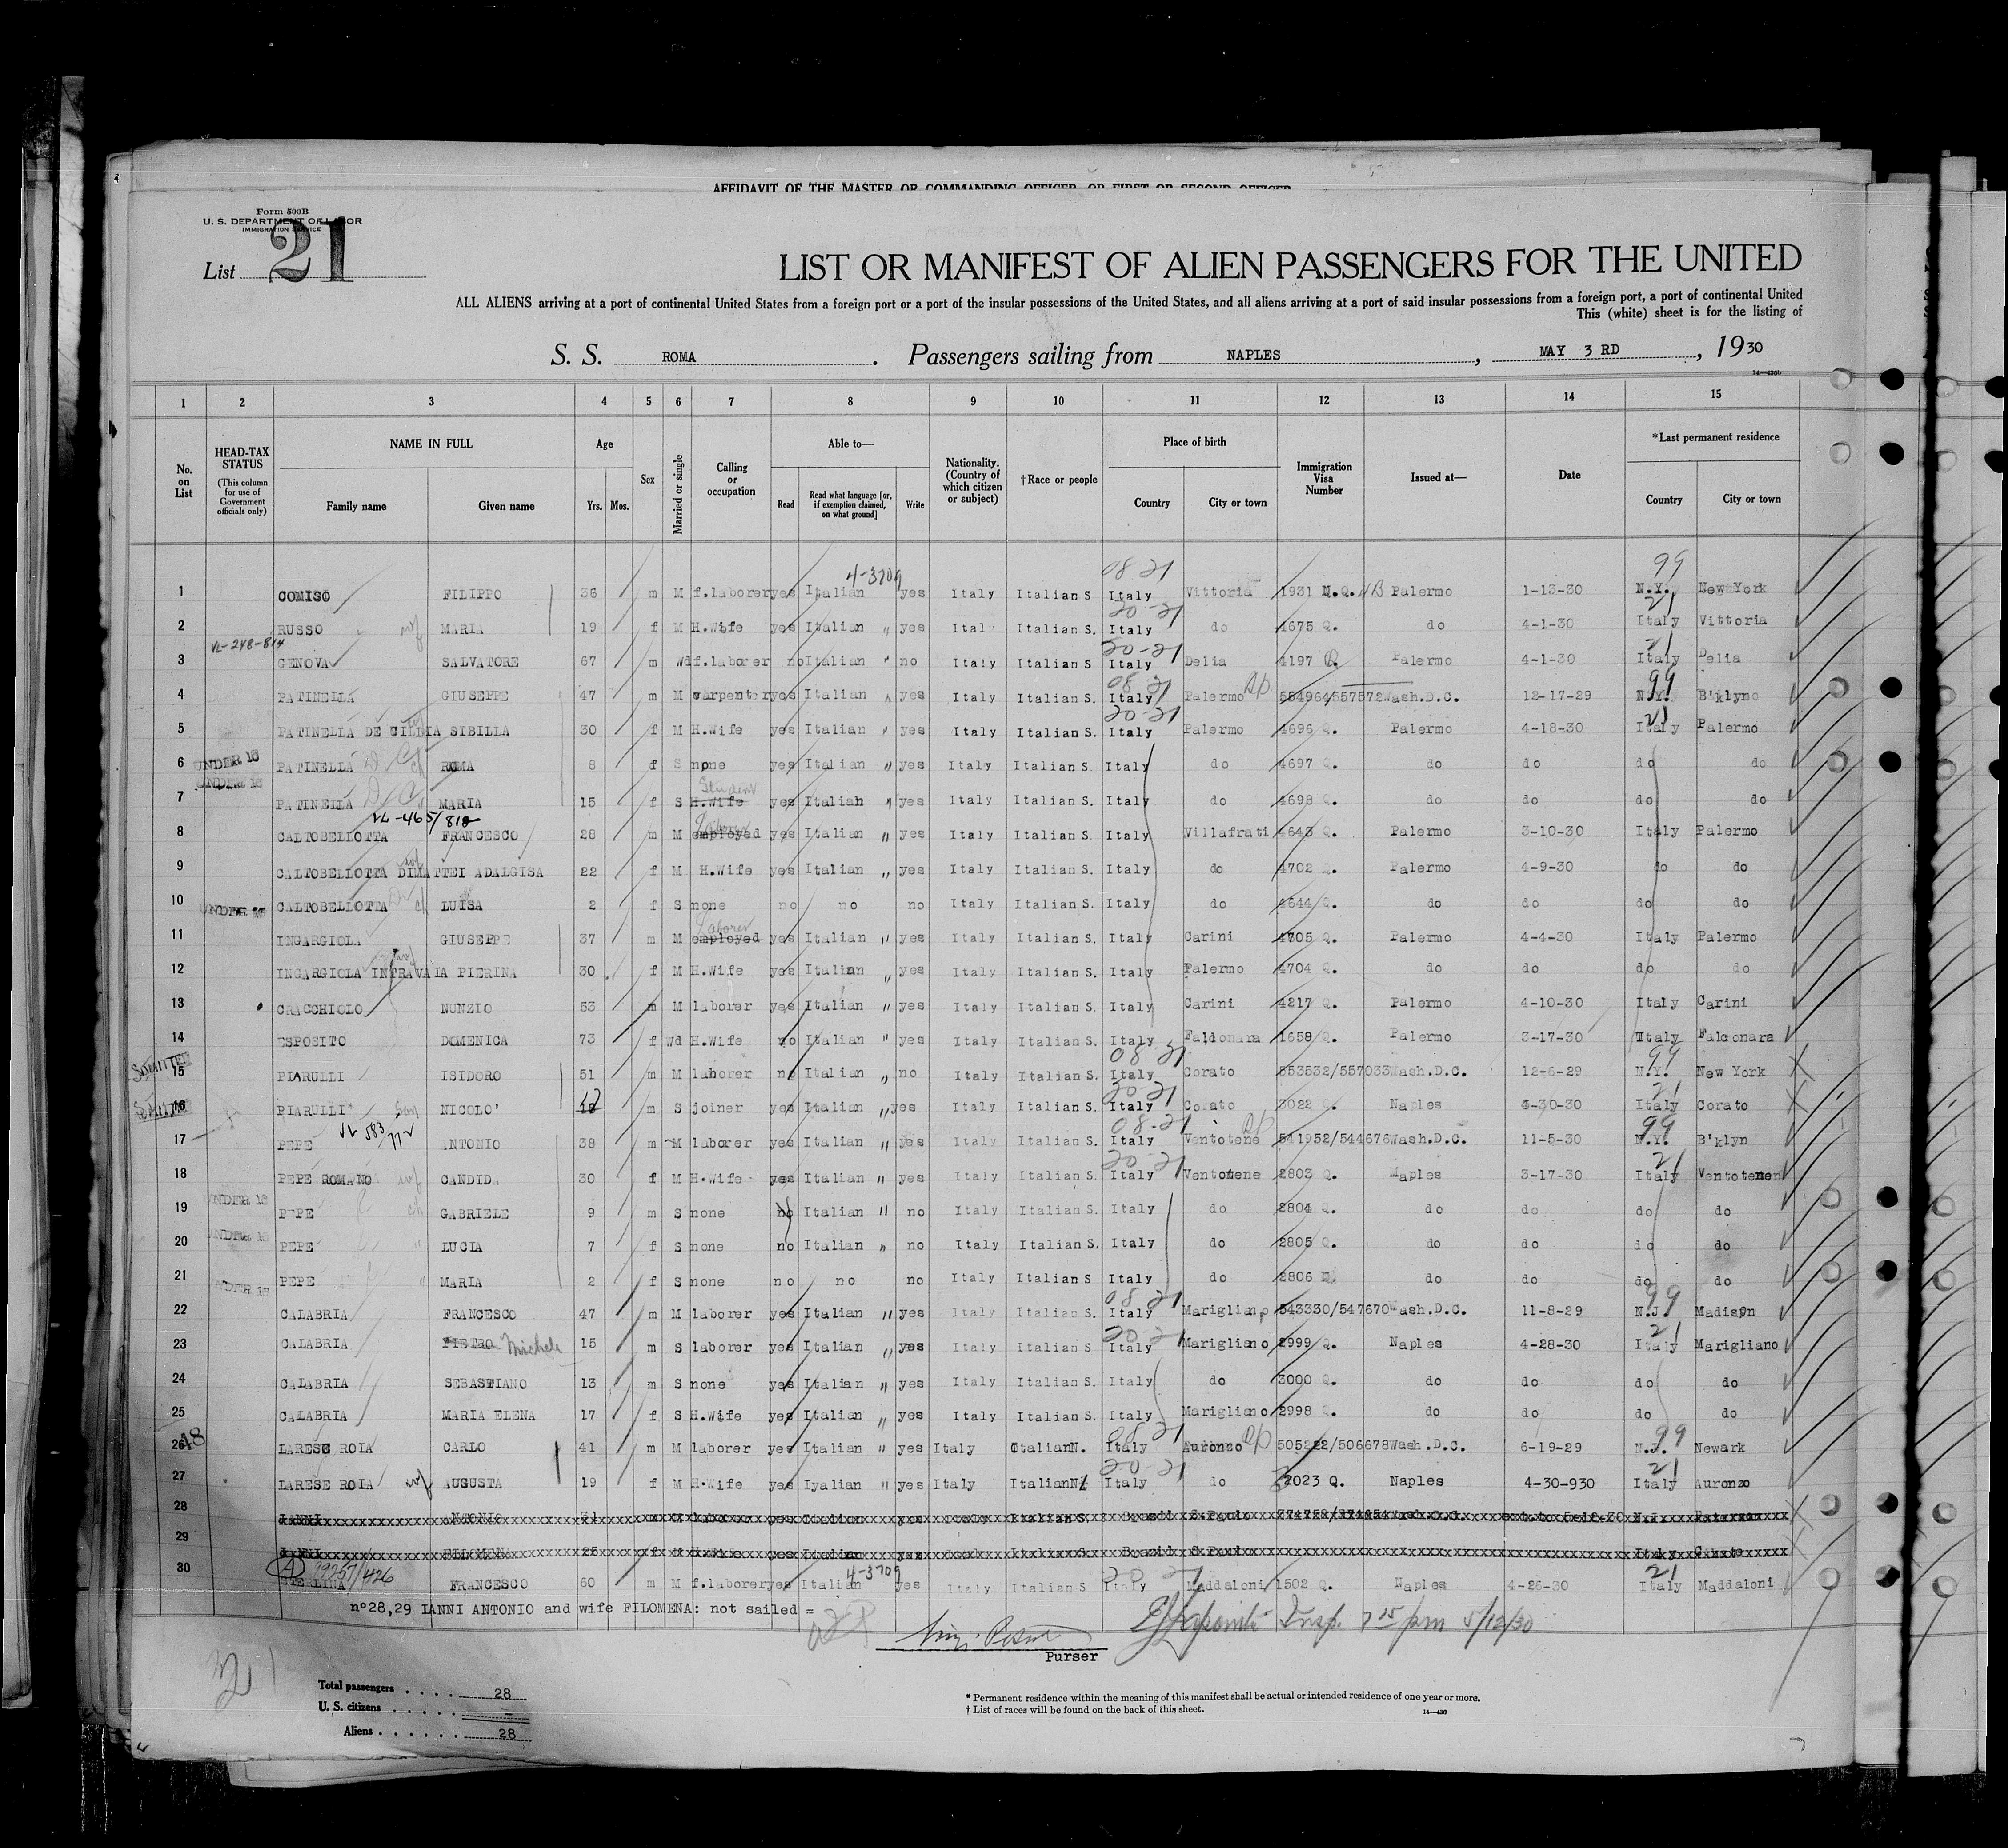 AFFIDAVIT OF THE MASTER OR COMMANDING OFFICER, OR FIRST OR SECOND OFFICER
Form 500B
U. S. DEPARTMENT OF LABOR
IMMIGRATION SERVICE
List 21
LIST OR MANIFEST OF ALIEN PASSENGERS FOR THE UNITED
ALL ALIENS arriving at a port of continental United States from a foreign port or a port of the insular possessions of the United States, and all aliens arriving at a port of said insular possessions from a foreign port, a port of continental United
This (white) sheet is for the listing of
S. S. ROMA. Passengers sailing from NAPLES, MAY 3 RD, 1930
14—430b
1 2 3 4 5 6 7 8 9 10 11 12 13 14 15
No. on List
HEAD-TAX STATUS (This column for use of Government officials only)
NAME IN FULL Family name Given name
Age Yrs. Mos.
Sex
Married or single
Calling or occupation
Able to— Read Read what language [or, if exemption claimed, on what ground] Write
Nationality. (Country of which citizen or subject)
†Race or people
Place of birth Country City or town
Immigration Visa Number
Issued at—
Date
*Last permanent residence Country City or town
4-3709 08 21 99
1 COMISO FILIPPO 36 m M f.laborer yes Italian yes Italy Italian S Italy Vittoria 1931 N.Q. Palermo 1-13-30 N.Y. New York
20-21 21
2 RUSSO wf MARIA 19 f M H.Wife yes Italian " yes Italy Italian S. Italy do 4675 Q. do 4-1-30 Italy Vittoria
VL-248-814 20-21 21
3 GENOVA SALVATORE 67 m Wd f.laborer no Italian " no Italy Italian S Italy Delia 4197 Q. Palermo 4-1-30 Italy Delia
08 21 99
4 PATINELLA GIUSEPPE 47 m M carpenter yes Italian yes Italy Italian S Italy Palermo 554964/557572 Wash.D.C. 12-17-29 N.Y. B'klyn
20-21 21
5 PATINELLA DE CILDIA SIBILLA 30 f M H.Wife yes Italian " yes Italy Italian S. Italy Palermo 4696 Q. Palermo 4-18-30 Italy Palermo
6 UNDER 16 PATINELLA ch ROMA 8 f S none yes Italian " yes Italy Italian S Italy do 4697 Q. do do do do
UNDER 16 Student
7 PATINELLA " MARIA 15 f S H.Wife yes Italian " yes Italy Italian S. Italy do 4698 Q. do do do do
VL-465/812 Laborer
8 CALTOBELLOTTA FRANCESCO 28 m M employed yes Italian " yes Italy Italian S. Italy Villafrati 4643 Q. Palermo 3-10-30 Italy Palermo
9 CALTOBELLOTTA DIMATTEI ADALGISA 22 f M H.Wife yes Italian " yes Italy Italian S. Italy do 4702 Q. Palermo 4-9-30 do do
10 UNDER 16 CALTOBELLOTTA ch LUISA 2 f S none no no no Italy Italian S. Italy do 4644 Q. do do do do
Laborer
11 INGARGIOLA GIUSEPPE 37 m M employed yes Italian " yes Italy Italian S. Italy Carini 4705 Q. Palermo 4-4-30 Italy Palermo
12 INGARGIOLA INTRAVAIA PIERINA 30 f M H.Wife yes Italian " yes Italy Italian S. Italy Palermo 4704 Q. do do do do
13 CRACCHIOLO NUNZIO 53 m M laborer yes Italian " yes Italy Italian S. Italy Carini 4217 Q. Palermo 4-10-30 Italy Carini
14 ESPOSITO DOMENICA 73 f Wd H.Wife no Italian " yes Italy Italian S. Italy Falconara 1658 Q. Palermo 3-17-30 Italy Falconara
08 21 99
15 PIARULLI ISIDORO 51 m M laborer no Italian " no Italy Italian S. Italy Corato 553532/557033 Wash.D.C. 12-6-29 N.Y. New York
20-21 21
16 PIARULLI Son NICOLO' m S joiner yes Italian " yes Italy Italian S. Italy Corato 3022 Q. Naples 4-30-30 Italy Corato
VL 583/772 08-21 99
17 PEPE ANTONIO 38 m M laborer yes Italian " yes Italy Italian S. Italy Ventotene 541952/544676 Wash.D.C. 11-5-30 N.Y. B'klyn
20-21 21
18 PEPE ROMANO wf CANDIDA 30 f M H.Wife yes Italian " yes Italy Italian S. Italy Ventotene 2803 Q. Naples 3-17-30 Italy Ventotenen
19 UNDER 16 PEPE ch GABRIELE 9 m S none no Italian " no Italy Italian S. Italy do 2804 Q. do do do do
20 UNDER 16 PEPE " LUCIA 7 f S none no Italian " no Italy Italian S. Italy do 2805 Q. do do do do
21 UNDER 16 PEPE " MARIA 2 f S none no no no Italy Italian S Italy do 2806 do do do do
08 21 99
22 CALABRIA FRANCESCO 47 m M laborer yes Italian " yes Italy Italian S. Italy Marigliano 543330/547670 Wash.D.C. 11-8-29 N.J. Madison
20-21 21
23 CALABRIA PIETRO Michele 15 m S laborer yes Italian " yes Italy Italian S Italy Marigliano 2999 Q. Naples 4-28-30 Italy Marigliano
24 CALABRIA SEBASTIANO 13 m S none yes Italian " yes Italy Italian S. Italy do 3000 Q. do do do do
25 CALABRIA MARIA ELENA 17 f S H.Wife yes Italian " yes Italy Italian S. Italy Marigliano 2998 Q. do do do do
08 21 99
26 LARESE ROIA CARLO 41 m M laborer yes Italian " yes Italy Italian N. Italy Auronzo 505222/506678 Wash.D.C. 6-19-29 N.J. Newark
20-21 21
27 LARESE ROIA wf AUGUSTA 19 f M H.Wife yes Iyalian " yes Italy Italian N. Italy do 2023 Q. Naples 4-30-930 Italy Auronzo
28 IANNI ANTONIO 31 m M laborer yes Italian yes Italy Italian S. Brazil S.Paulo Wash.D.C.
29 IANNI FILOMENA 25 f M H.Wife yes Italian yes Italian S Brazil S.Paulo Italy
A 99257/426 4-3709 21
30 STERLINA FRANCESCO 60 m M f.laborer yes Italian yes Italy Italian S Italy Maddaloni 1502 Q. Naples 4-26-30 Italy Maddaloni
n°28,29 IANNI ANTONIO and wife FILOMENA: not sailed =
Insp. 7 15 pm 5/12/30
Purser
Total passengers . . . . . 28
U. S. citizens . . . . . . –
Aliens . . . . . . . 28
* Permanent residence within the meaning of this manifest shall be actual or intended residence of one year or more.
† List of races will be found on the back of this sheet.
14—430